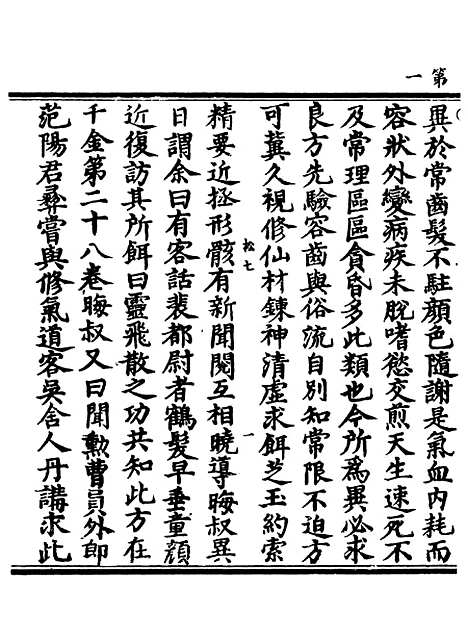 第一
異於常齒髮不駐顏色隨謝是氣血内耗而
容狀外變病疾未脫嗜慾交煎天生速死不
及常理區區貪昏多此類也今所爲異必求
良方先驗容齒與俗流自別知常限不迫方
可冀久視修仙材鍊神清虛求餌芝玉約索
松七
一
精要近拯形骸有新聞閱互相曉導晦叔異
日謂余曰有客話裴都尉者鶴髮早垂童顏
近復訪其所餌曰靈飛散之功共知此方在
千金第二十八卷晦叔又曰聞勲曹員外郎
范陽君彞嘗與修氣道客吳舍人丹講求此